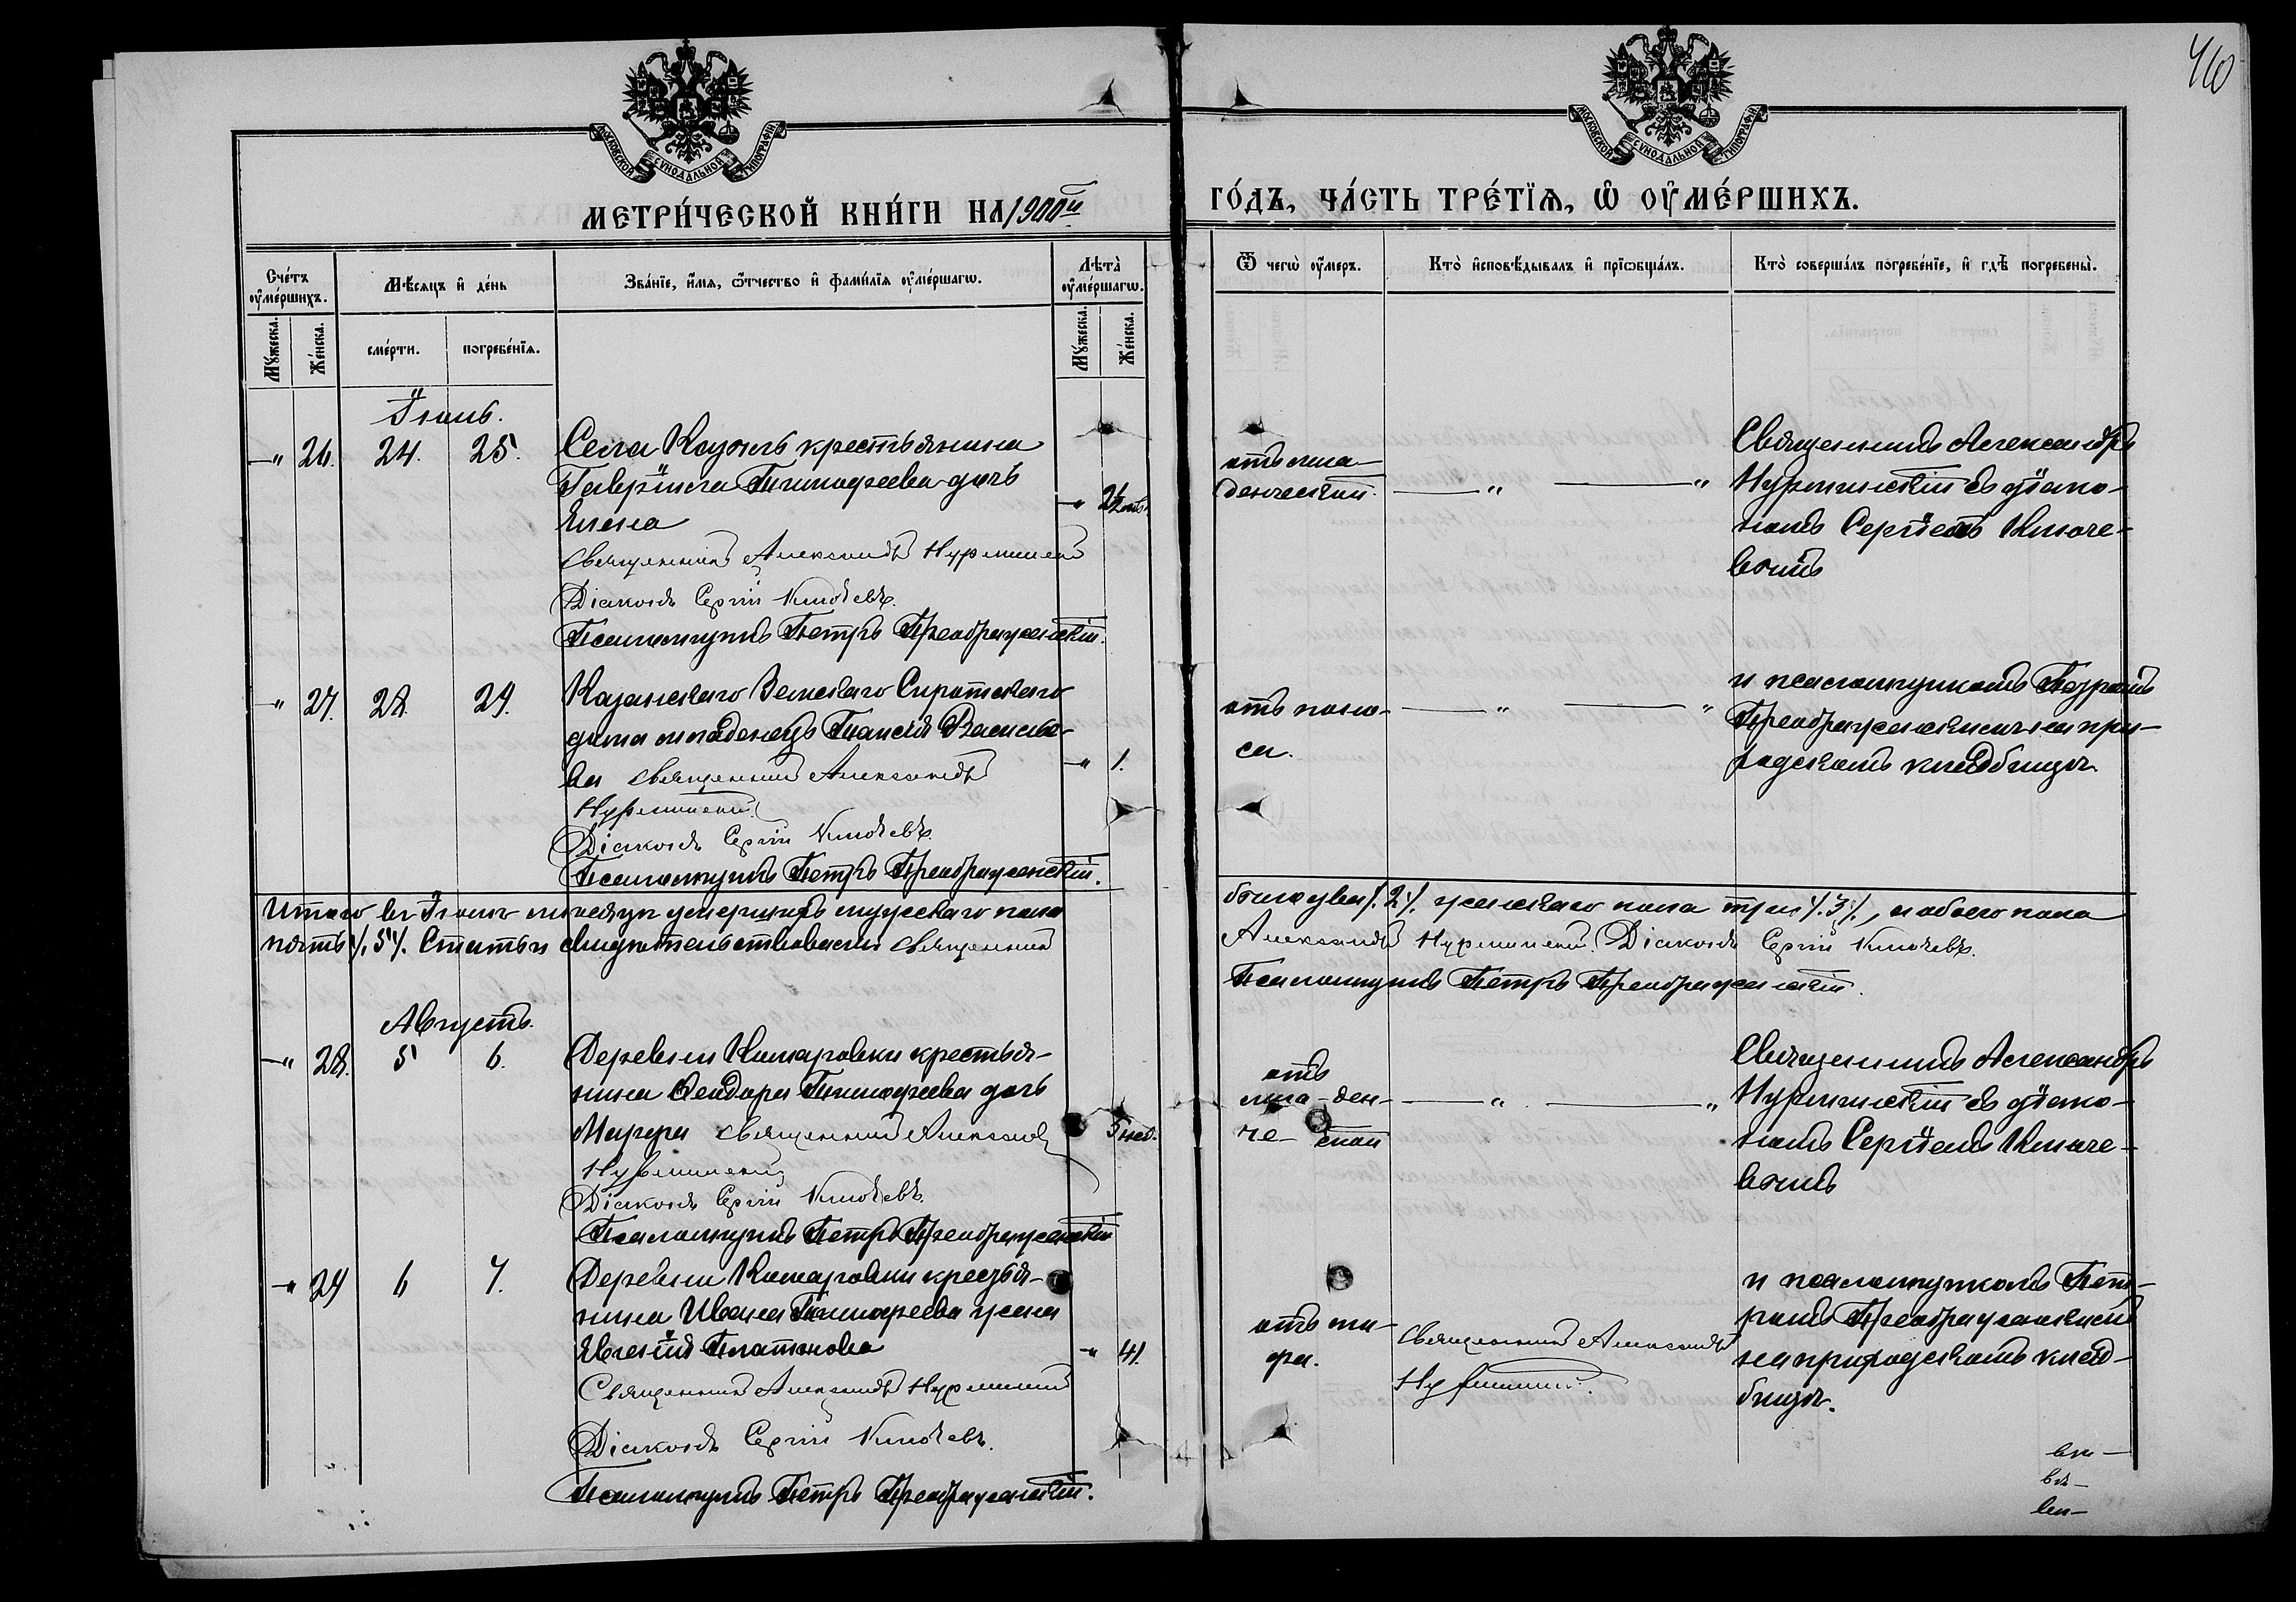 460
МОСКОВСКОЙ СУНОДАЛЬНОЙ ТИПОГРАФІИ
МОСКОВСКОЙ СУНОДАЛЬНОЙ ТИПОГРАФІИ
МЕТРИ́ЧЕСКОЙ КНИ́ГИ НА 1900й
ГО́ДЪ, ЧА́СТЬ ТРЕ́ТІѦ, Ѡ ОУМЕ́РШИХЪ.
Сче́тъ оуме́ршихъ.
Мѣ́сяцъ и де́нь
Зва́ніе, и́мѧ, ѻ́тчество и фами́лїѧ оуме́ршагѡ.
Лѣта̀ оуме́ршагѡ.
Мꙋ́жеска.
Же́нска.
сме́рти.
погребе́нїѧ.
Мꙋ́жеска.
Же́нска.
Ѿ чегѡ̀ оу́меръ.
Кто̀ и́сповѣ́дывалъ и прїѡбща́лъ.
Кто̀ соверша́лъ погребе́нїе, и гдѣ̀ погребены̀.
Іюль.
—" 26. 24. 25.
крестьянина
Гавріила Тимофеева дочь
Елена
Священникъ Александръ Нурминскій
Діаконъ Сергій Ключевъ.
Псаломщикъ Петръ Преображенскій.
отъ мла-
денческой.
Священникъ Александръ
Нурминскій съ діако-
номъ Сергіемъ Ключе-
вымъ
—" 27. 28. 29.
Казанскаго Земскаго Сиротскаго
дома младенецъ Таисія Василье-
ва Священникъ Александръ
Нурминскій
Діаконъ Сергій Ключевъ.
Псаломщикъ Петръ Преображенскій.
—" 1.
отъ поно-
са.
и псаломщикомъ Петромъ
Преображенскимъ на при-
ходскомъ кладбищѣ.
Итого въ Іюлѣ мѣсяцѣ умершихъ мужескаго пола
было два /.2/. женскаго пола три /.3/., а обоего пола
пять /.5/. Статьи свидѣтельствовали Священникъ
Александръ Нурминскій. Діаконъ Сергій Ключевъ.
Псаломщикъ Петръ Преображенскій.
Августъ.
—" 28. 5 6.
Деревни Комаровки крестья-
нина Ѳеодора Тимофеева дочь
Марѳа Священникъ Александръ
Нурминскій
Діаконъ Сергій Ключевъ.
Псаломщикъ Петръ Преображенскій
5 нед.
отъ
мла-ден-
че- ской
Священникъ Александръ
Нурминскій съ діако-
номъ Сергіемъ Ключе-
вымъ
—" 29 6 7.
Деревни Комаровки крестья-
нина Ивана Тимофеева жена
Евгенія Платонова
Священникъ Александръ Нурминскій
Діаконъ Сергій Ключевъ.
Псаломщикъ Петръ Преображенскій.
—" 41.
отъ ти-
фа.
Священникъ Александръ
Нурминскій.
и псаломщикомъ Пет-
ромъ Преображенскимъ
на приходскомъ клад-
бищѣ.